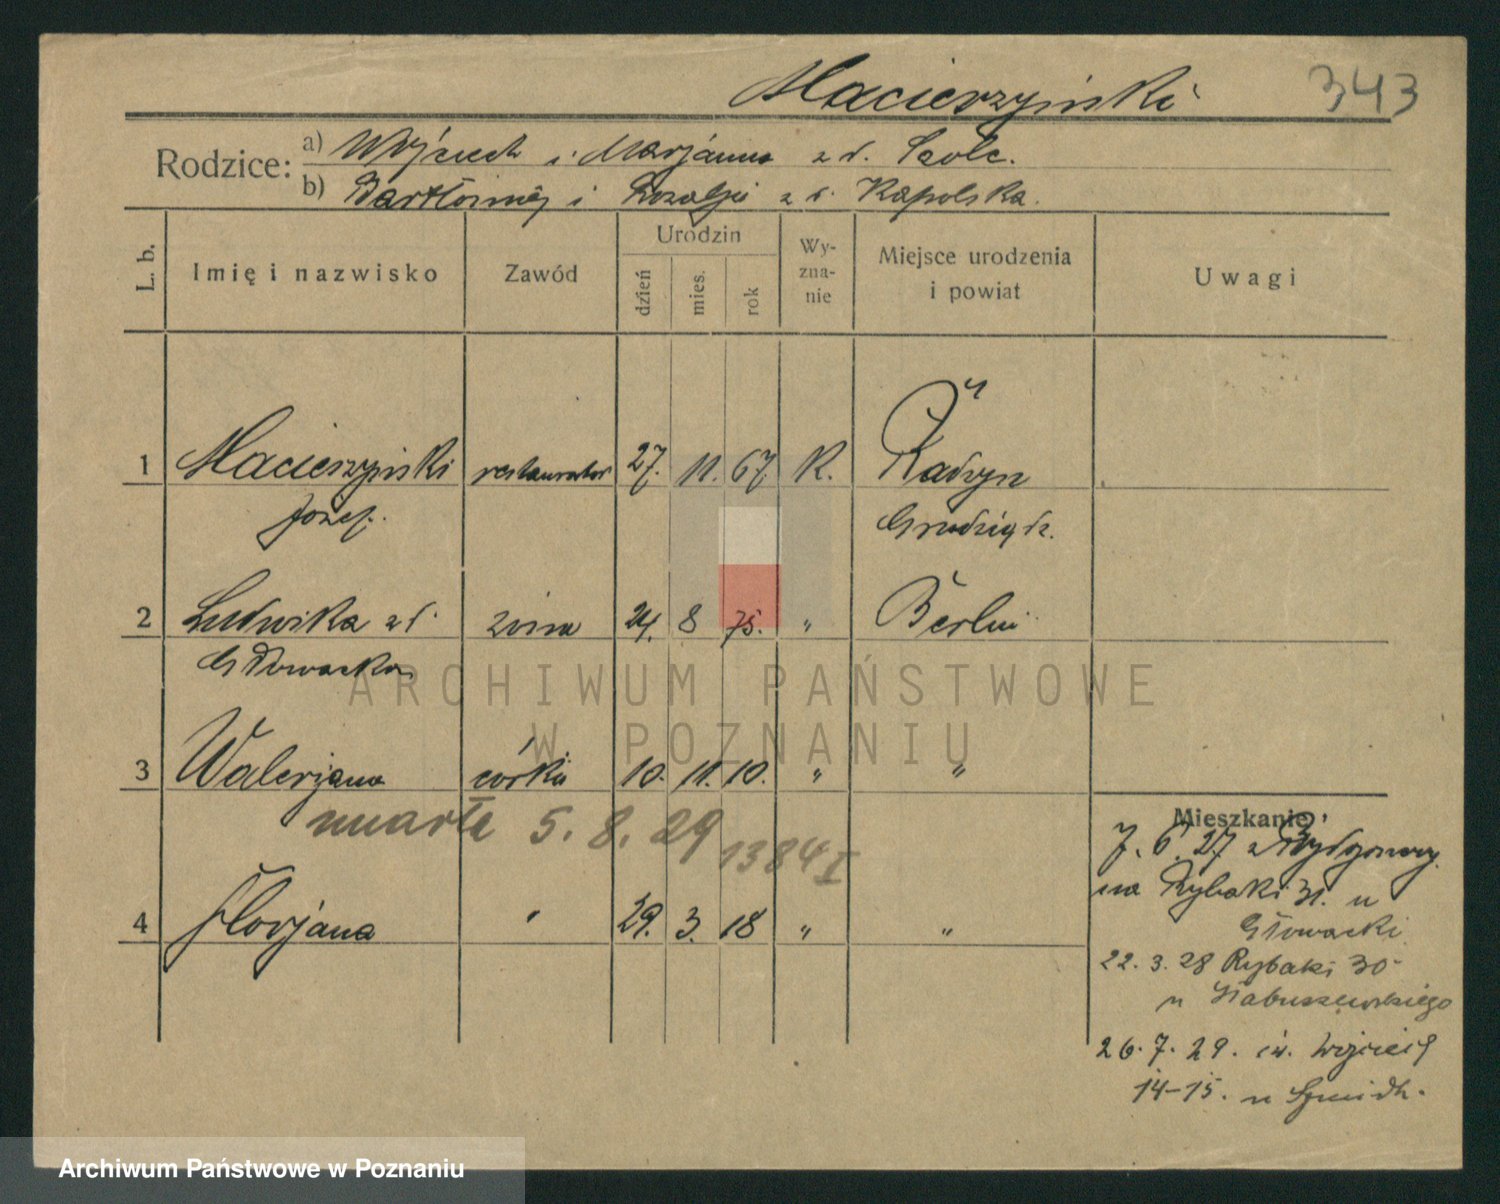 Macierzyński 343
Rodzice: a) Wojciech i Marjanna z d. Szolc.
b) Bartłomiej i Rozalja z d. Kapolska.
L. b. Imię i nazwisko Zawód Urodzin dzień mies. rok Wy-zna-nie Miejsce urodzenia i powiat Uwagi
1 Macierzyński restaurator 27. 11. 67. K. Radzyn
Józef. Grudziądz.
2 Ludwika z d. żona 24. 8 75. " Berlin
Głowacka
3 Walerjana córka 10. 11. 10. " "
umarła 5. 8. 29 1384 I
4 Florjana " 29. 3. 18 " "
Mieszkanie
7. 6. 27 z Bydgoszczy
na Rybaki 31. u
Głowacki
22. 3. 28 Rybaki 30
u
26. 7. 29. św. Wojciech
14-15. u
ARCHIWUM PAŃSTWOWE
W POZNANIU
Archiwum Państwowe w Poznaniu